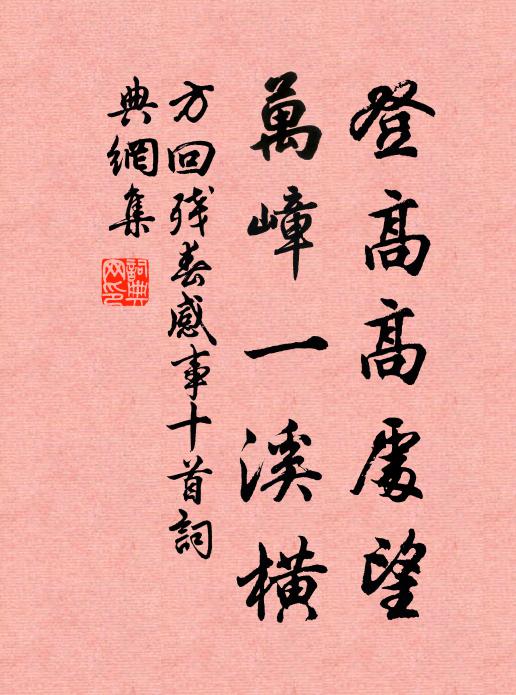 登高高處望
萬嶂一溪橫
方回殘春感事十首詞
典網集
詞典網印